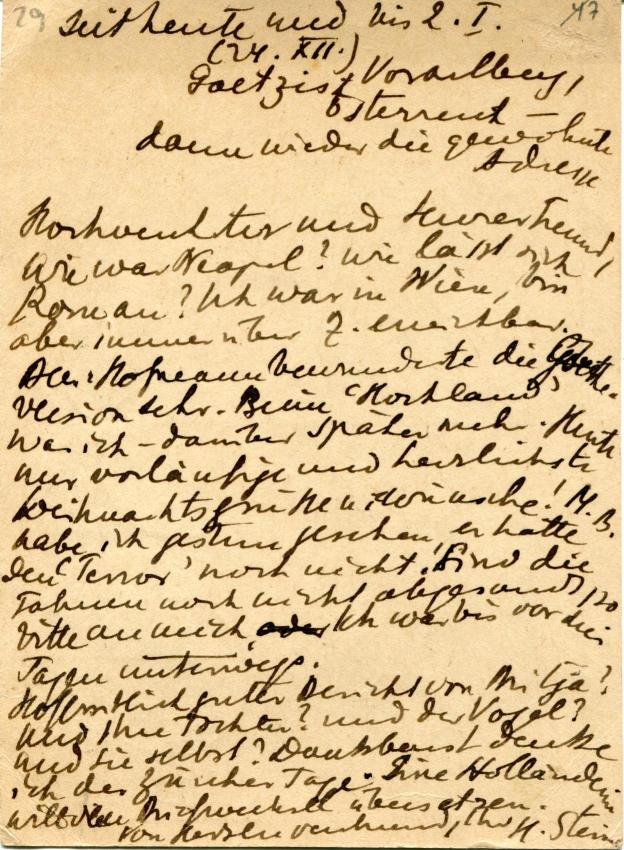 29 47
seit heute und bis 2. I.
(24. XII.)
Goetzis, Vorarlberg,
Österreich —
dann wieder die gewohnte
Adresse
Hochverehrter und teurer Freund,
wie war Neapel? wie lässt sich
Rom an? Ich war in Wien, bin
aber immer über Z. erreichbar.
Der Hofmann bewunderte die Goethe-
version sehr. Beim "Hochland"
war ich – darüber später mehr. Heute
nur vorläufige und herzlichste
Weihnachtsgrüsse u. wünsche! M. B.
habe ich gestern gesehen, er hatte
den 'Terror' noch nicht. Sind die
Fahnen noch nicht abgesandt, so
bitte an mich Ich war bis vor drei
Tagen unterwegs.
Hoffentlich guter Bericht von Mitja?
und Ihre Tochter? und der Vogel?
und Sie selbst? Dankbarst denke
ich der Zürcher Tage. Eine Holländerin
will den Briefwechsel übersetzen.
Von Herzen verehrend, Ihr H. Steiner